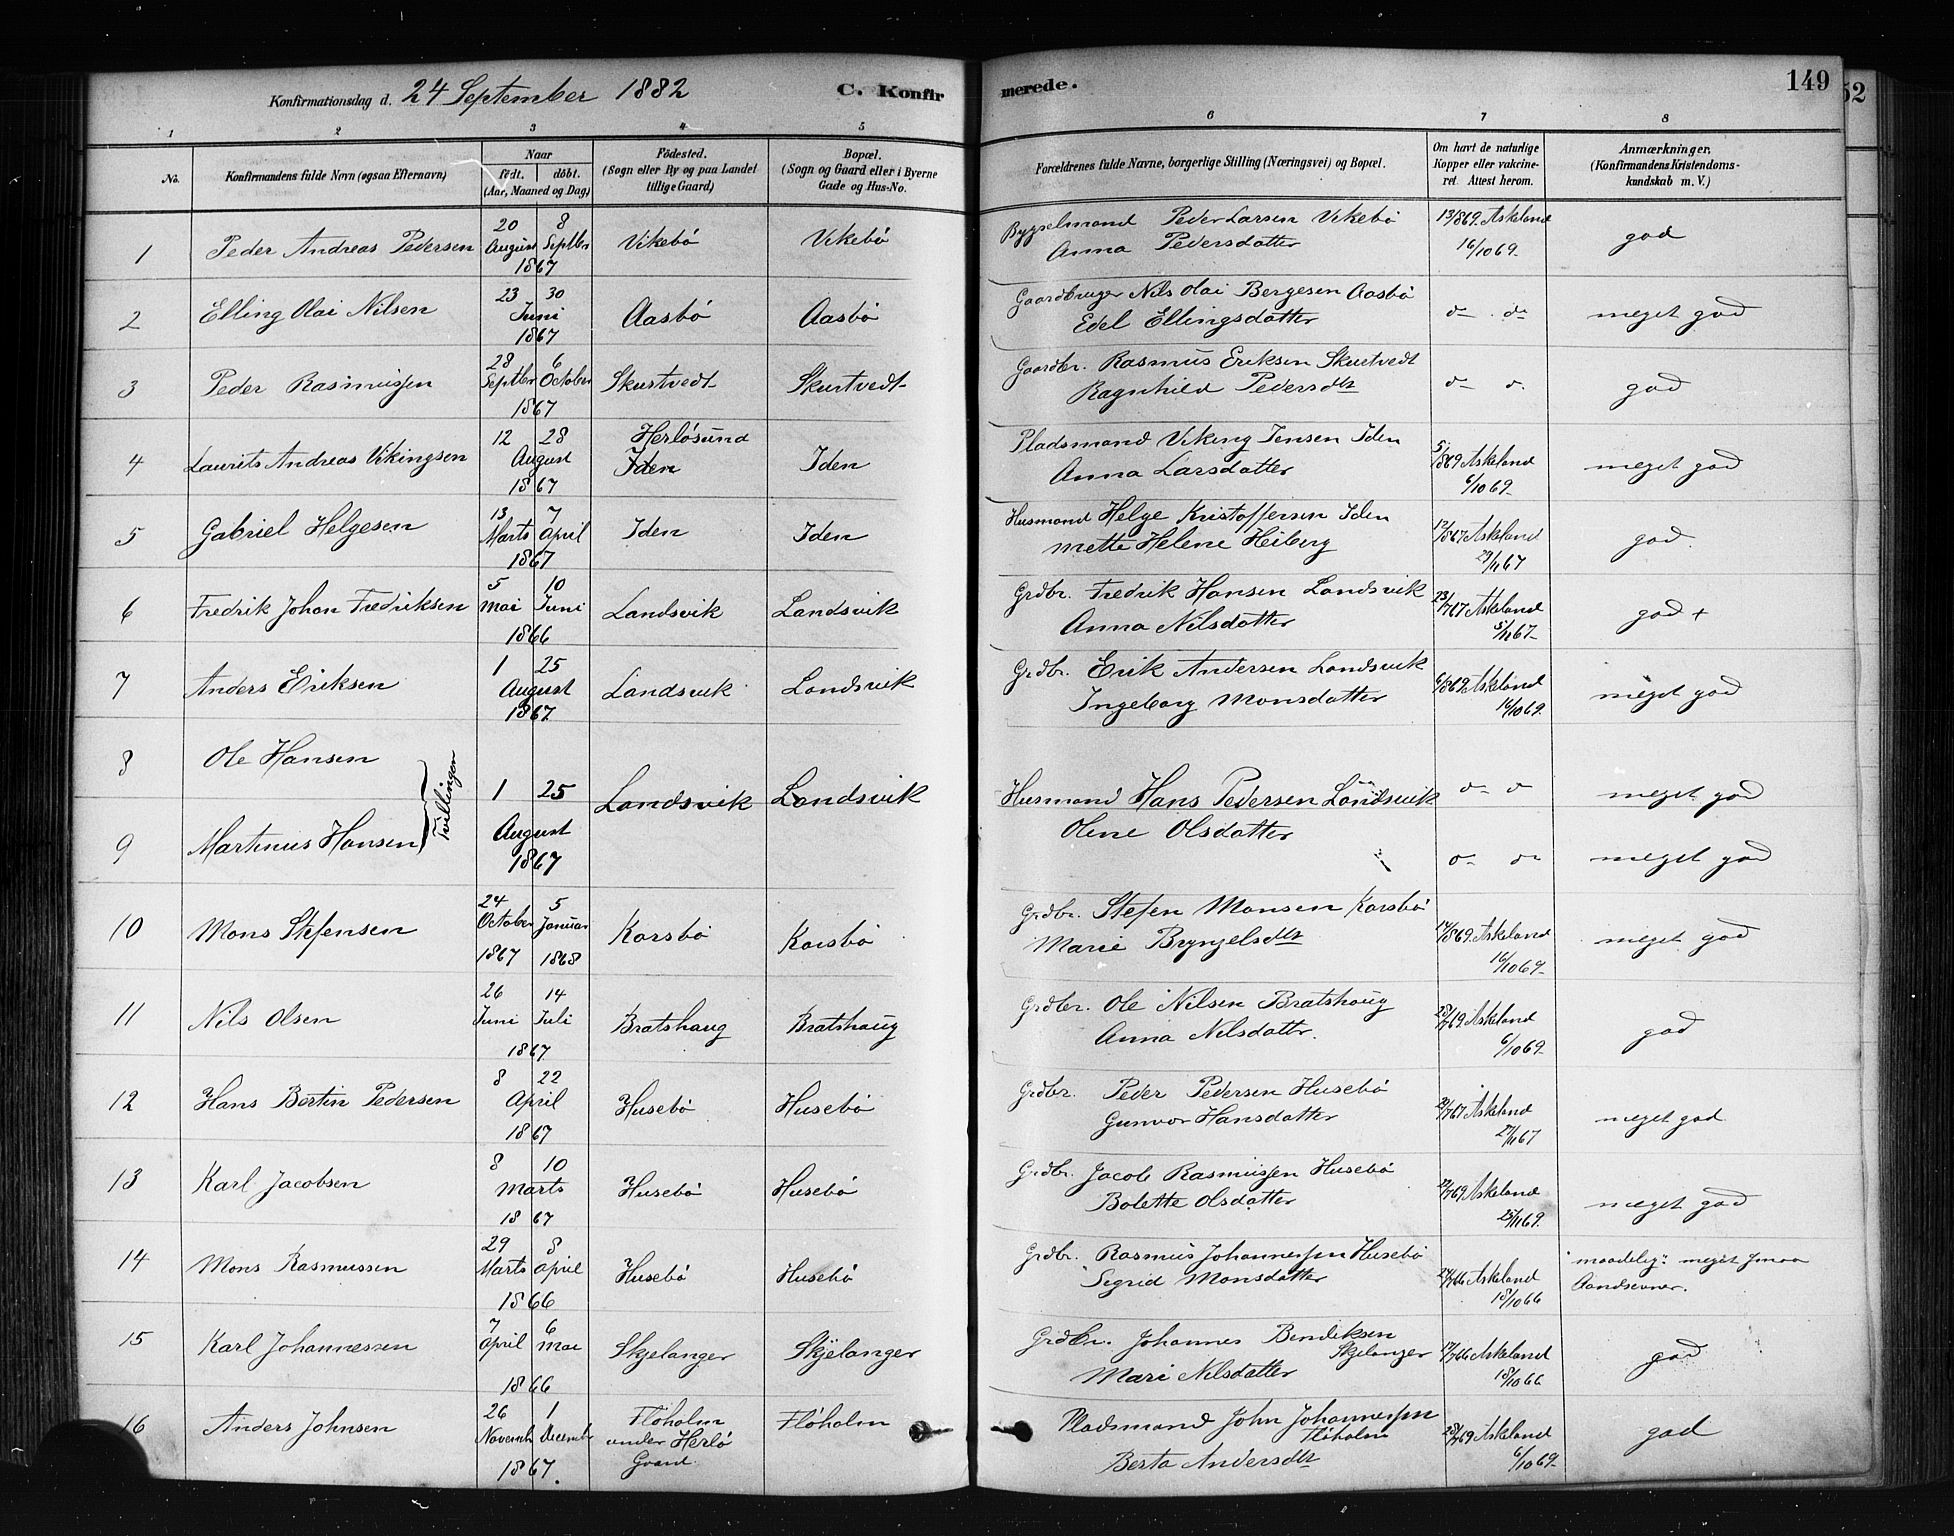 Konfirmationsdag d. 24 September 1882
C. Konfirmerede.
149
52
1 2 3 4 5 6 7 8
No.
Konfirmandens fulde Navn (ogsaa Efternavn)
Naar
født. døbt.
(Aar, Maaned og Dag)
Fødested.
(Sogn eller By og paa Landet
tillige Gaard)
Bopæl.
(Sogn og Gaard eller i Byerne
Gade og Hus-No.
Forældrenes fulde Navne, borgerlige Stilling (Næringsvei) og Bopæl.
Om havt de naturlige
Kopper eller vakcine-
ret. Attest herom.
Anmærkninger,
(Konfirmandens Kristendoms-
kundskab m. V.)
1 Peder Andreas Pedersen 20 August 8 Septber 1867 Vikebø Vikebø Bygselmand Peder Larsen Vikebø 13/869. Askeland
Anna Pedersdatter 16/1069. god
2 Elling Olai Nilsen 23 30 Juni 1867 Aasbø Aasbø Gaardbruger Nils Olai Bergesen Aasbø
Edel Ellingsdatter do do meget god
3 Peder Rasmussen 28 Septber 6 October 1867 Skurtvedt Skurtvedt Gaardbr. Rasmus Eriksen Skurtvedt
Ragnhild Pedersdtr god
4 Laurits Andreas Vikingsen 12 28 August 1867 Herløsund
Iden Iden Pladsmand Viking Jensen Iden 5/869 Askeland
Anna Larsdatter 6/1069. meget god
5 Gabriel Helgesen 13 Marts 7 April 1867 Iden Iden Husmand Helge Kristoffersen Iden 12/867 Askeland
Mette Helene Heiberg 29/1167 god.
6 Fredrik Johan Fredriksen 5 Mai 10 Juni 1866 Landsvik Landsvik Grdbr. Fredrik Hansen Landsvik 23/767 Askeland
Anna Nilsdatter 5/1167. god +
7 Anders Eriksen 1 25 August 1867 Landsvik Landsvik Grdbr. Erik Andersen Landsvik 6/869 Askeland
Ingeborg Monsdatter 16/1069. meget god
8 Ole Hansen
Tvillinger
1 25 August 1867 Landsvik Landsvik Husmand Hans Pedersen Landsvik do do meget god
9 Martinius Hansen
Olene Olsdatter do do meget god
10 Mons Stefensen 24 October 1867 5 Januar 1868 Korsbø Korsbø Grdbr. Stefen Monsen Korsbø 17/869. Askeland
Marie Brynjelsdtr 16/1069. meget god
11 Nils Olsen 26 Juni 14 Juli 1867 Bratshaug Bratshaug Grdbr. Ole Nilsen Bratshaug 28/769. Askeland
Anna Nilsdatter. 6/1069. god
12 Hans Bertin Pedersen 8 22 April 1867 Husebø Husebø Grdbr. Peder Pedersen Husebø
Gunvor Hansdatter Askeland 27/1167 meget god
13 Karl Jacobsen 8 10 Marts 1867 Husebø Husebø Grdbr. Jacob Rasmussen Husebø
Bolette Olsdatter Askeland 25/1169. meget god
14 Mons Rasmussen 29 Marts 8 April 1866 Husebø Husebø Grdbr. Rasmus Johannessen Husebø
Sigrid Monsdatter 24/766 Askeland 18/1066 "maadelig". meget smaa
Aandsevner.
15 Karl Johannessen 7 April 6 Mai 1866 Skjelanger Skjelanger Grdbr. Johannes Bendiksen
Skjelanger
Mari Nilsdatter 17/766 Askeland 18/1066 god
16 Anders Johnsen 26 Novemb 1 Decemb 1867. Fløholm
under Herlø
Gaard Fløholm Pladsmand John Johannessen
Fløholm
Berta Andersdtr 28/769 Askeland 6/1069. god